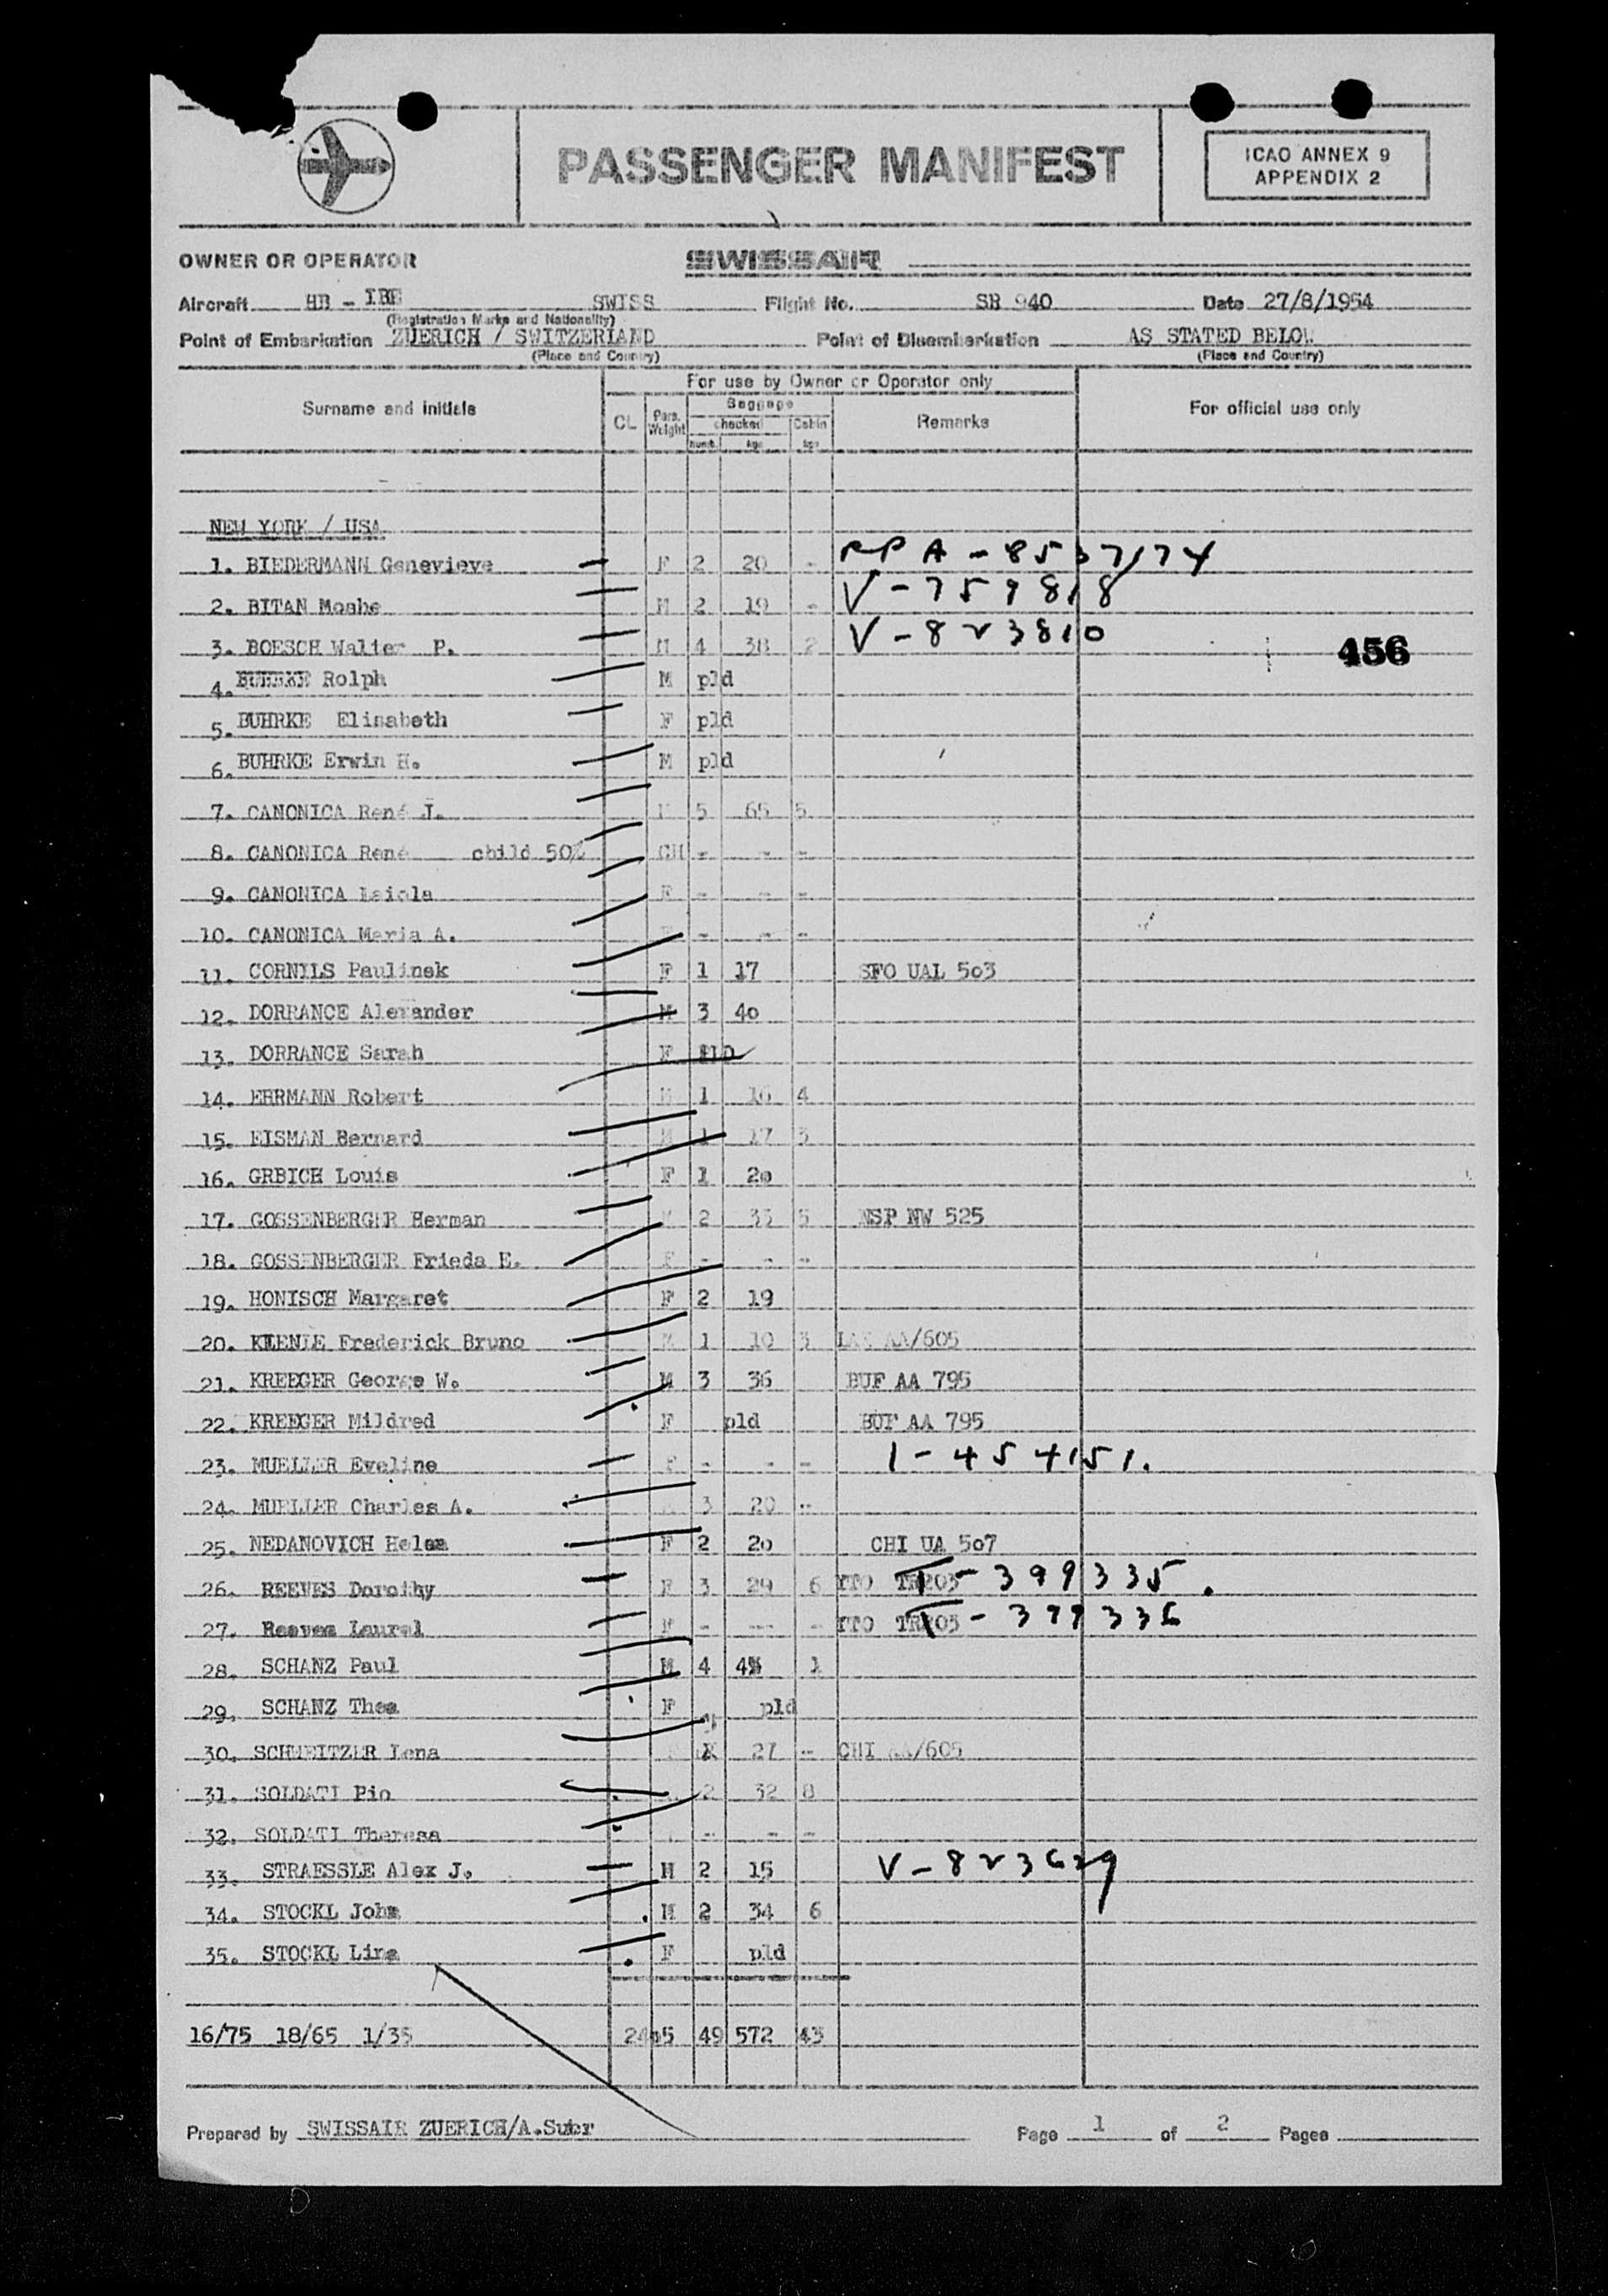 PASSENGER MANIFEST
ICAO ANNEX 9
APPENDIX 2
OWNER OR OPERATOR SWISSAIR
Aircraft HB - IBE SWISS Flight No. SR 940 Date 27/8/1954
(Registration Marks and Nationality)
Point of Embarkation ZUERICH / SWITZERLAND Point of Disembarkation AS STATED BELOW
(Place and Country) (Place and Country)
For use by Owner or Operator only
Surname and initials CL Pers. Weight Baggage checked numb. kgs Cabin kgs Remarks For official use only
NEW YORK / USA
1. BIEDERMANN Genevieve F 2 20 - RP A-8537174
2. BITAN Moshe M 2 19 - V-759818
3. BOESCH Walter P. M 4 38 2 V-823810 456
4. Rolph M pld
5. BUHRKE Elisabeth F pld
6. BUHRKE Erwin H. M pld
7. CANONICA René J. M 5 65 5
8. CANONICA René child 50% CH - - -
9. CANONICA F - - -
10. CANONICA Maria A. F - - -
11. CORNILS Paulinek F 1 17 SFO UAL 503
12. DORRANCE Alexander M 3 40
13. DORRANCE Sarah F PLD
14. EHRMANN Robert M 1 16 4
15. EISMAN Bernard M 1 17 3
16. GRBICH Louis F 1 20
17. GOSSENBERGER Herman M 2 33 5 MSP NW 525
18. GOSSENBERGER Frieda E. F - - -
19. HONISCH Margaret F 2 19
20. KLENIE Frederick Bruno M 1 10 3 LAX AA/605
21. KREEGER George W. M 3 36 BUF AA 795
22. KREEGER Mildred F pld BUF AA 795
23. MUELLER Eveline F - - - 1-454151.
24. MUELLER Charles A. M 3 20 -
25. NEDANOVICH Helen F 2 20 CHI UA 507
26. REEVES Dorothy F 3 29 6 YTO TR203 T-399335.
27. Reeves Laurel F - - - YTO TR203 T-399336
28. SCHANZ Paul M 4 1
29. SCHANZ Thea F pld
30. SCHWEITZER Lena 27 - CHI AA/605
31. SOLDATI Pio 2 32 8
32. SOLDATI Theresa - - -
33. STRAESSLE Alex J. M 2 15 V-823629
34. STOCKL John M 2 34 6
35. STOCKL Lina F pld
16/75 18/65 1/35 2405 49 572 43
Prepared by SWISSAIR ZUERICH/A.Suter Page 1 of 2 Pages